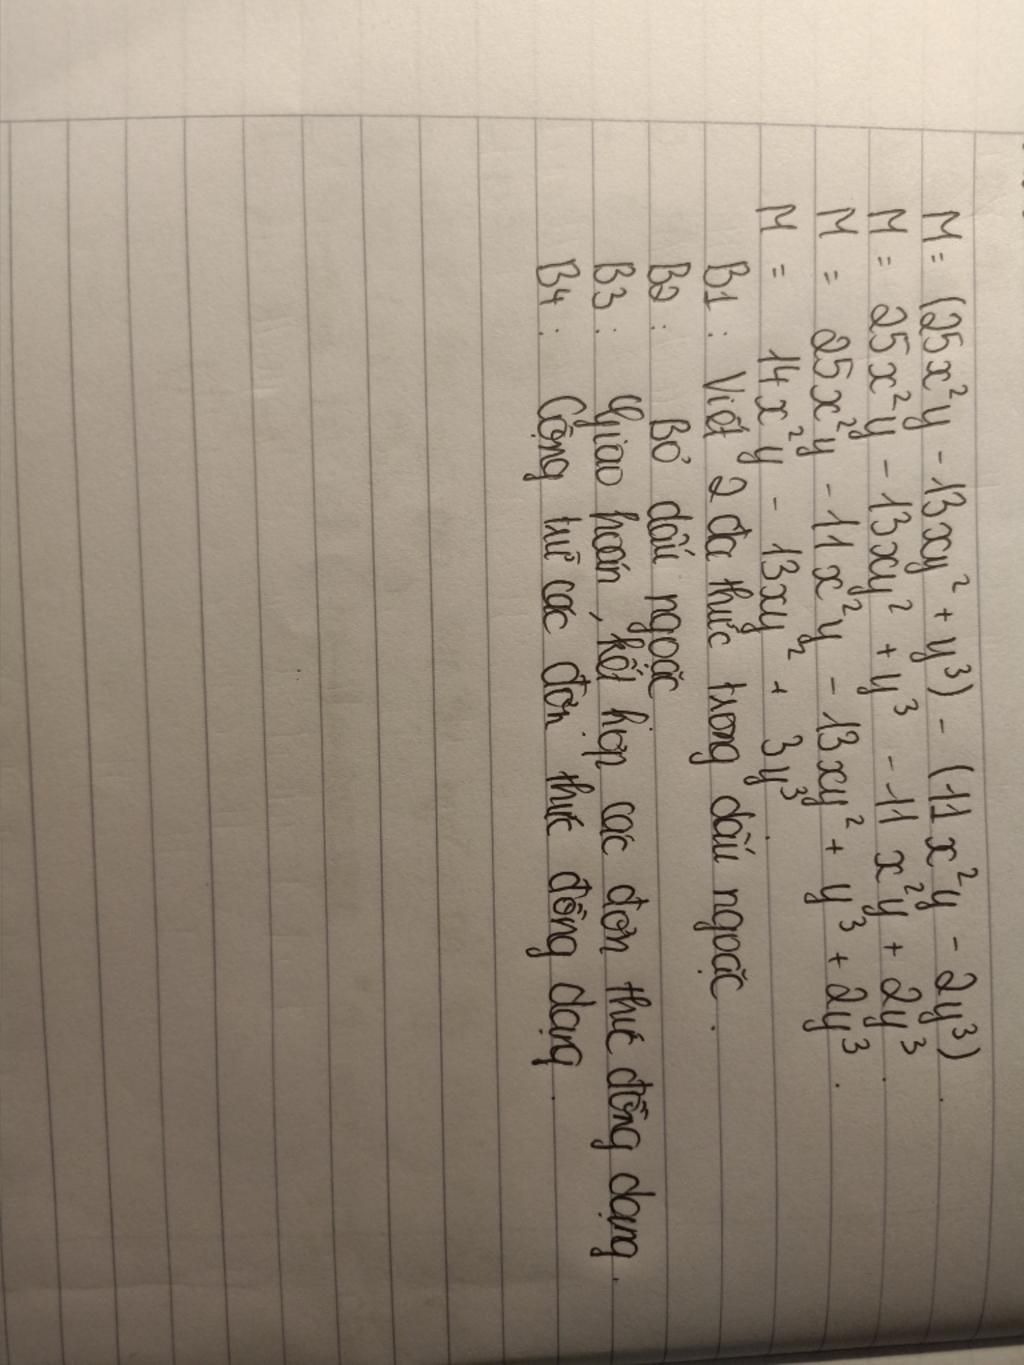 M = (25x²y - 13xy² + y³) - (11x²y - 2y³).
M = 25x²y - 13xy² + y³ - 11x²y + 2y³.
M = 25x²y - 11x²y - 13xy² + y³ + 2y³.
M = 14x²y - 13xy² + 3y³.
B1: Viết 2 đa thức trong dấu ngoặc.
B2: Bỏ dấu ngoặc
B3: Giao hoán, kết hợp các đơn thức đồng dạng.
B4: Cộng trừ các đơn thức đồng dạng.